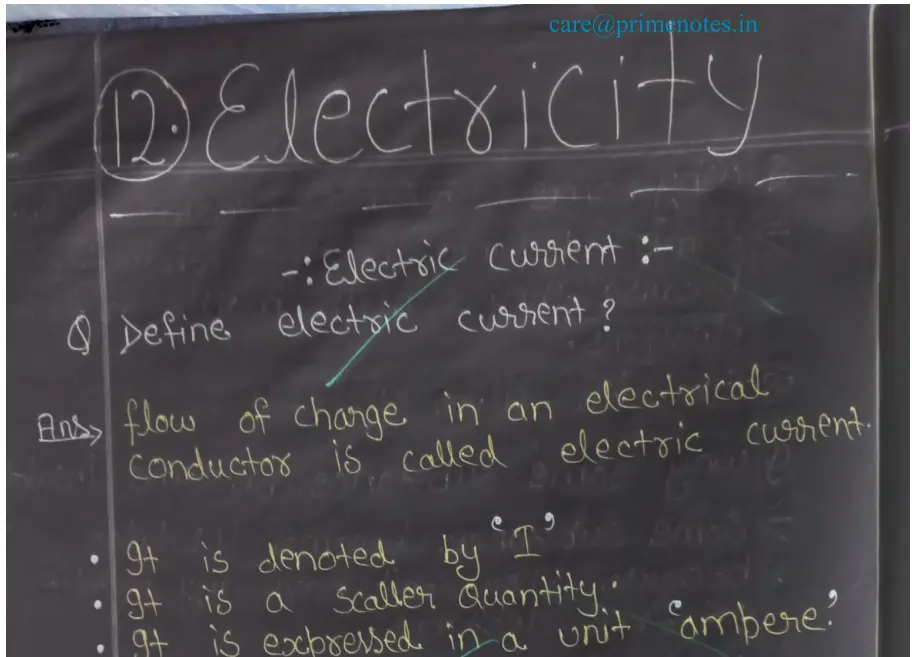 care@primenotes.in
12. Electricity
-: Electric current :-
Q Define electric current?
Ans, flow of charge in an electrical
conductor is called electric current.
• It is denoted by 'I'
• It is a scaller Quantity.
• It is expressed in a unit 'ampere'